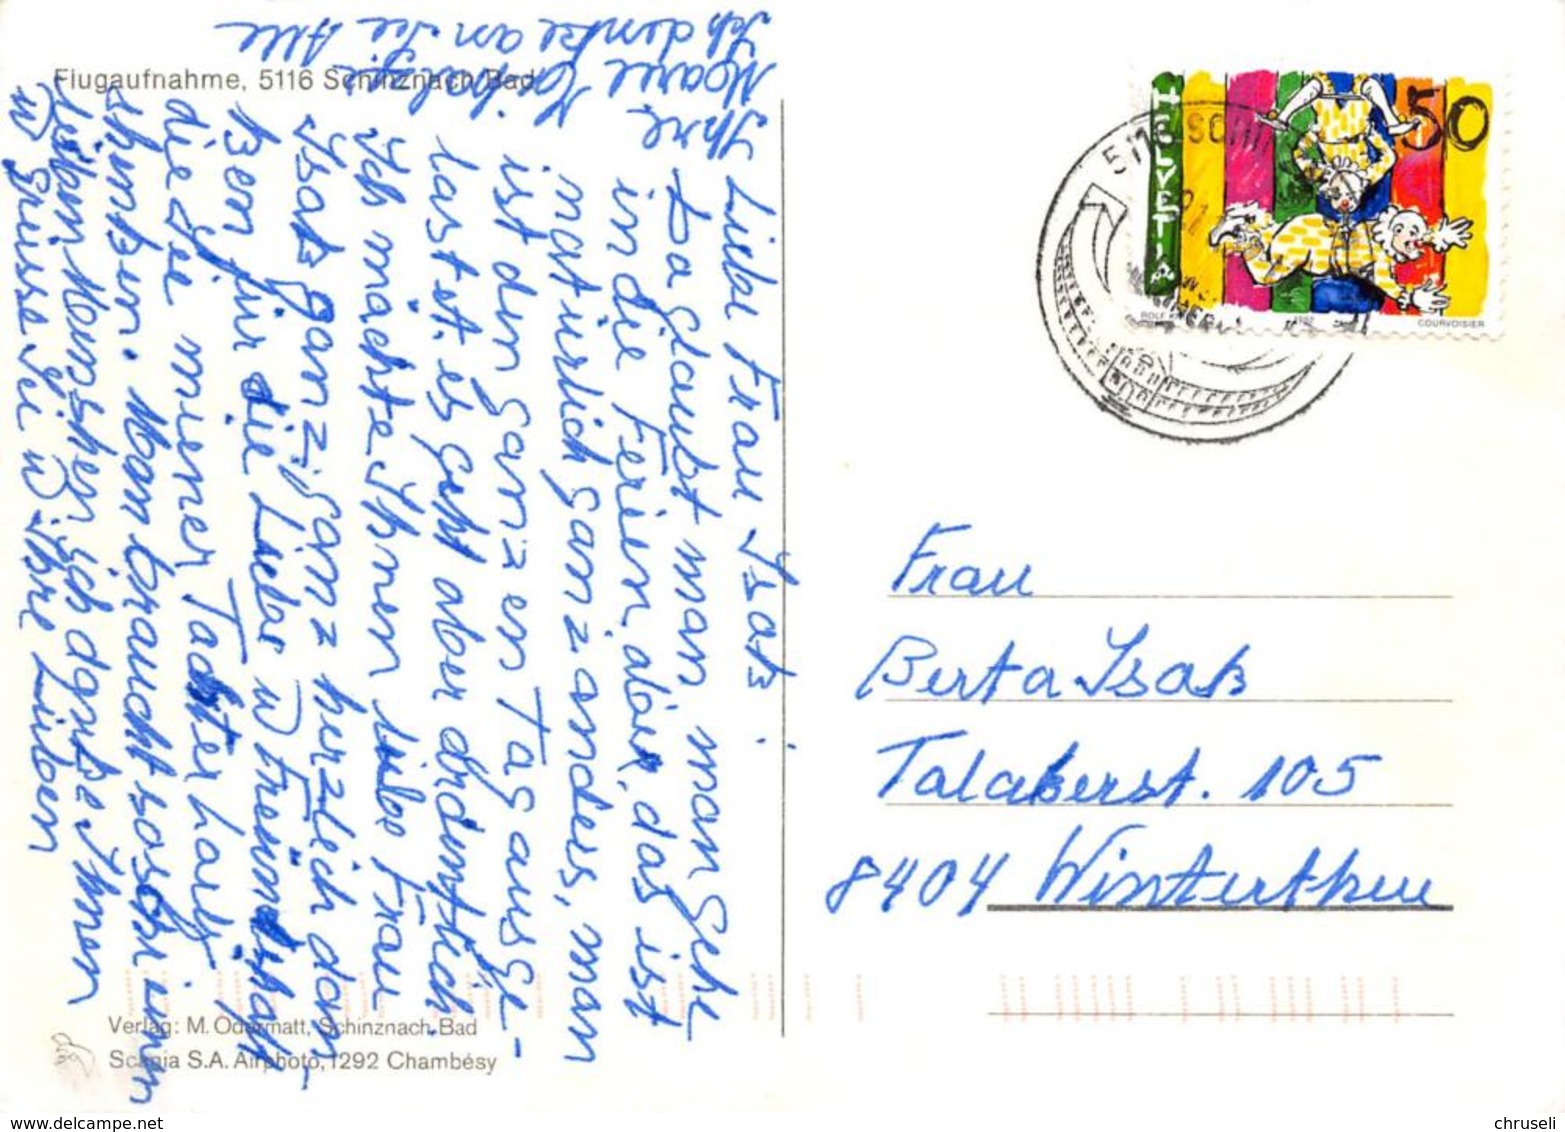 Flugaufnahme, 5116 Schinznach Bad
Liebe Frau Isak.
Da glaubt man, man gehe
in die Ferien, aber, das ist
natürlich ganz anders, man
ist den ganzen Tag ausge-
lastet. es geht aber ordentlich.
Ich möchte Ihnen liebe Frau
Isak ganz, ganz herzlich dan-
ken für die Liebe u Freundschaft
die Sie meiner Tochter
Man braucht solche inn
lieben Menschen ich danke Ihnen
u Grüsse Sie u Ihre Lieben
Ihre
Ich denke an Sie Alle
Verlag: M. Odermatt, Schinznach Bad
Scania S.A. Airphoto, 1292 Chambésy
HELVETIA
50
COURVOISIER
Frau
Berta Isak
Talakerst. 105
8404 Winterthur
www.delcampe.net
chruseli